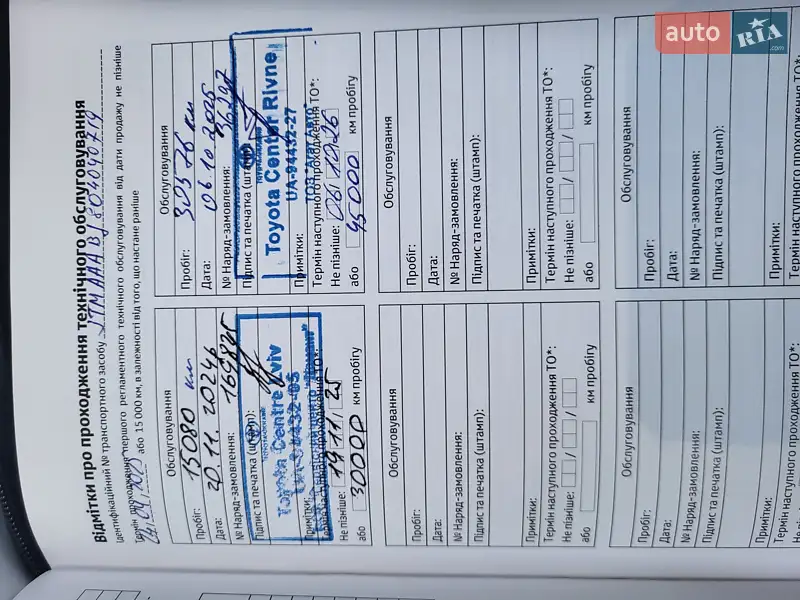 auto RIA .com
Відмітки про проходження технічного обслуговування
Ідентифікаційний № транспортного засобу JTMAAABJ804040719
Термін проходження першого регламентного технічного обслуговування від дати продажу не пізніше
або 15 000 км, в залежності від того, що настане раніше
Обслуговування
Пробіг: 15080 км
Дата: 20.11.2024р
№ Наряд-замовлення:
Підпис та печатка (штамп):
Toyota Centre Lviv
Примітки:
Не пізніше: 19/11/25
або 30000 км пробігу
Обслуговування
Пробіг: 30576 км
Дата: 06.10.2025
№ Наряд-замовлення:
Підпис та печатка (штамп):
Toyota Center Rivne
UA-94432-27
Примітки:
Термін наступного проходження ТО*:
Не пізніше: 06/10/26
або 45000 км пробігу
Обслуговування
Пробіг:
Дата:
№ Наряд-замовлення:
Підпис та печатка (штамп):
Примітки:
Термін наступного проходження ТО*:
Не пізніше:
або км пробігу
Обслуговування
Пробіг:
Дата:
№ Наряд-замовлення:
Підпис та печатка (штамп):
Примітки:
Термін наступного проходження ТО*:
Не пізніше:
або км пробігу
Обслуговування
Пробіг:
Дата:
№ Наряд-замовлення:
Підпис та печатка (штамп):
Примітки:
Обслуговування
Пробіг:
Дата:
№ Наряд-замовлення:
Підпис та печатка (штамп):
Примітки: